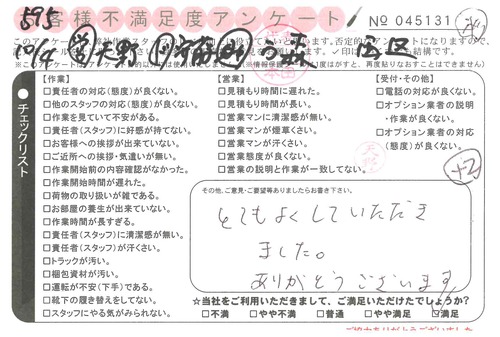 お客様不満足度アンケート
№ 045131
595
大野
チェックリスト
【作業】
□責任者の対応(態度)が良くない。
□他のスタッフの対応(態度)が良くない。
□作業を見ていて不安がある。
□責任者(スタッフ)に好感が持てない。
□お客様への挨拶が出来ていない。
□ご近所への挨拶・気遣いが無い。
□作業開始前の内容確認がなかった。
□作業開始時間が遅れた。
□荷物の取り扱いが雑である。
□お部屋の養生が出来ていない。
□作業時間が長すぎる。
□責任者(スタッフ)に清潔感が無い。
□責任者(スタッフ)が汗くさい。
□トラックが汚い。
□梱包資材が汚い。
□運転が不安(下手)である。
□靴下の履き替えをしてない。
□スタッフにやる気がみられない。
【営業】
□見積もり時間に遅れた。
□見積もり時間が長い。
□営業マンに清潔感が無い。
□営業マンが煙草くさい。
□営業マンが汗くさい。
□営業態度が良くない。
□営業の説明と作業が一致してない。
【受付・その他】
□電話の対応が良くない。
□オプション業者の説明・作業が良くない。
□オプション業者の対応(態度)が良くない。
+2
その他、ご意見・ご要望等ありましたらお書き下さい。
とてもよくしていただき
ました。
ありがとうございます
☆当社をご利用いただきまして、ご満足いただけたでしょうか?
□不満 □やや不満 □普通 □やや満足 ☑満足
ご協力ありがとうございました